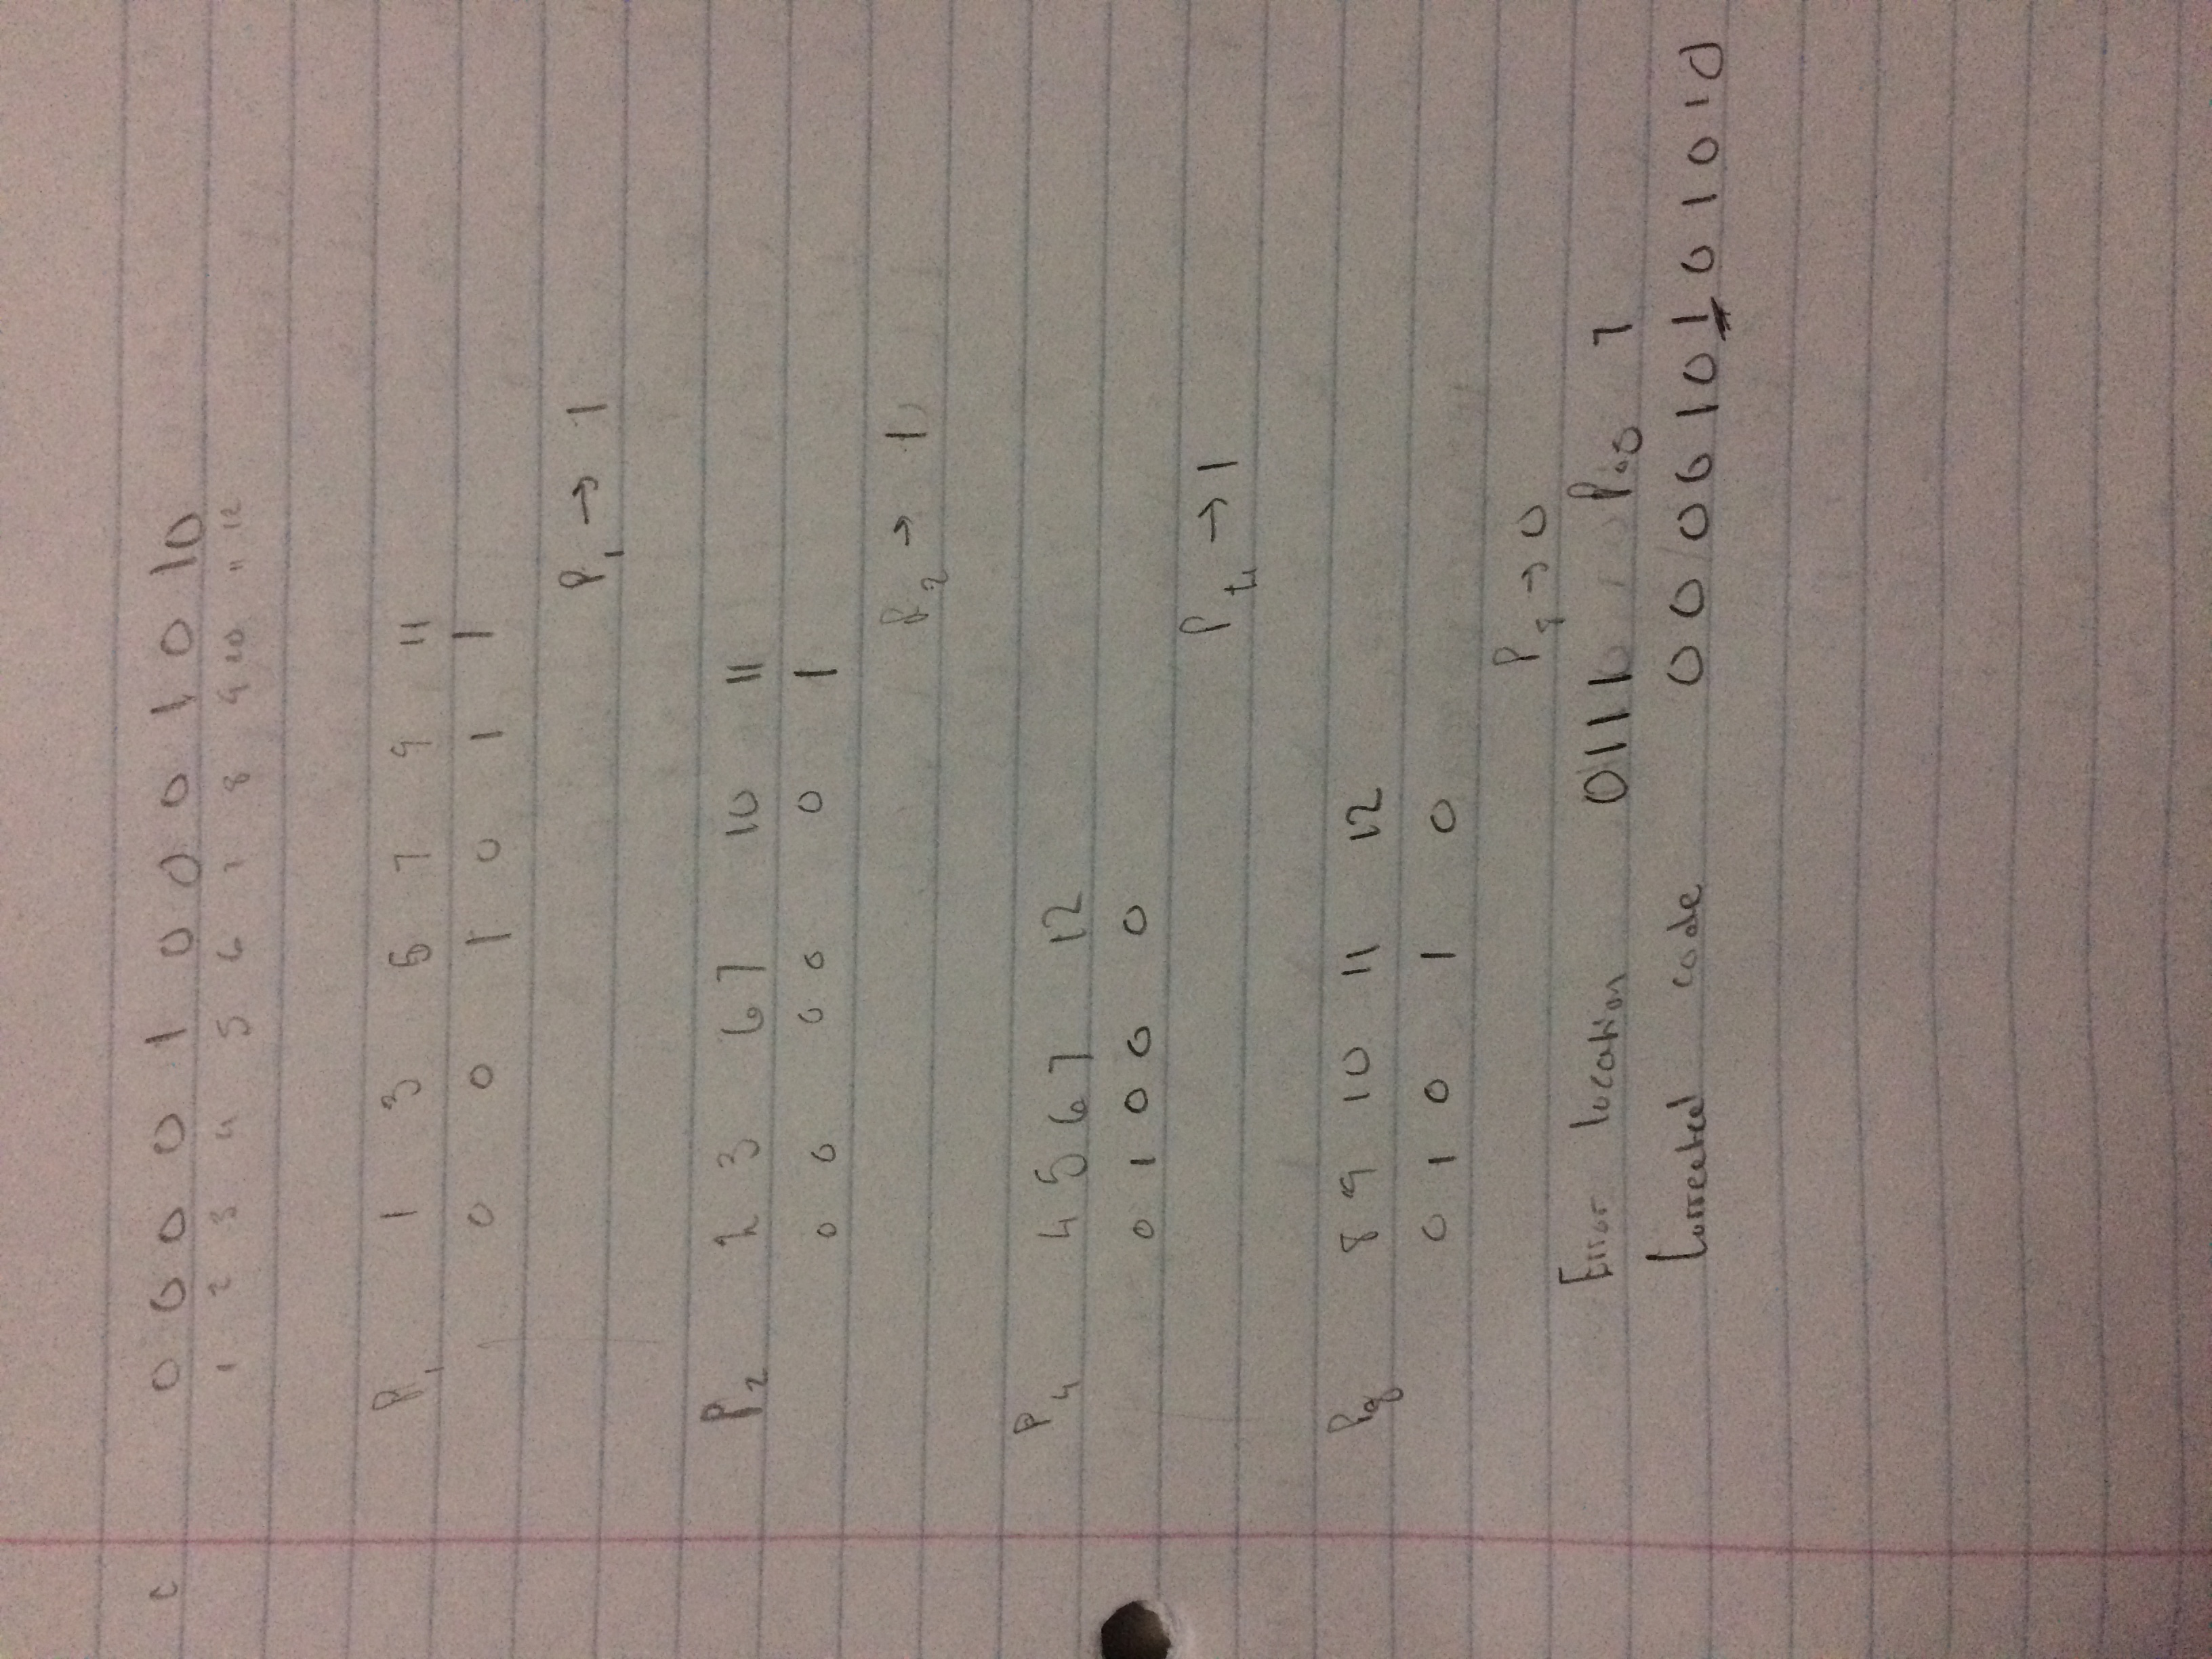 c 0 0 0 0 1 0 0 0 1 0 1 0
1 2 3 4 5 6 7 8 9 10 11 12
P1 1 3 5 7 9 11
0 0 1 0 1 1
P1 → 1
P2 2 3 6 7 10 11
0 0 0 0 0 1
P2 → 1
P4 4 5 6 7 12
0 1 0 0 0
P4 → 1
P8 8 9 10 11 12
0 1 0 1 0
→ 0
Error location 0111 Pos 7
Corrected code 0 0 0 0 1 0 1 0 1 0 1 0